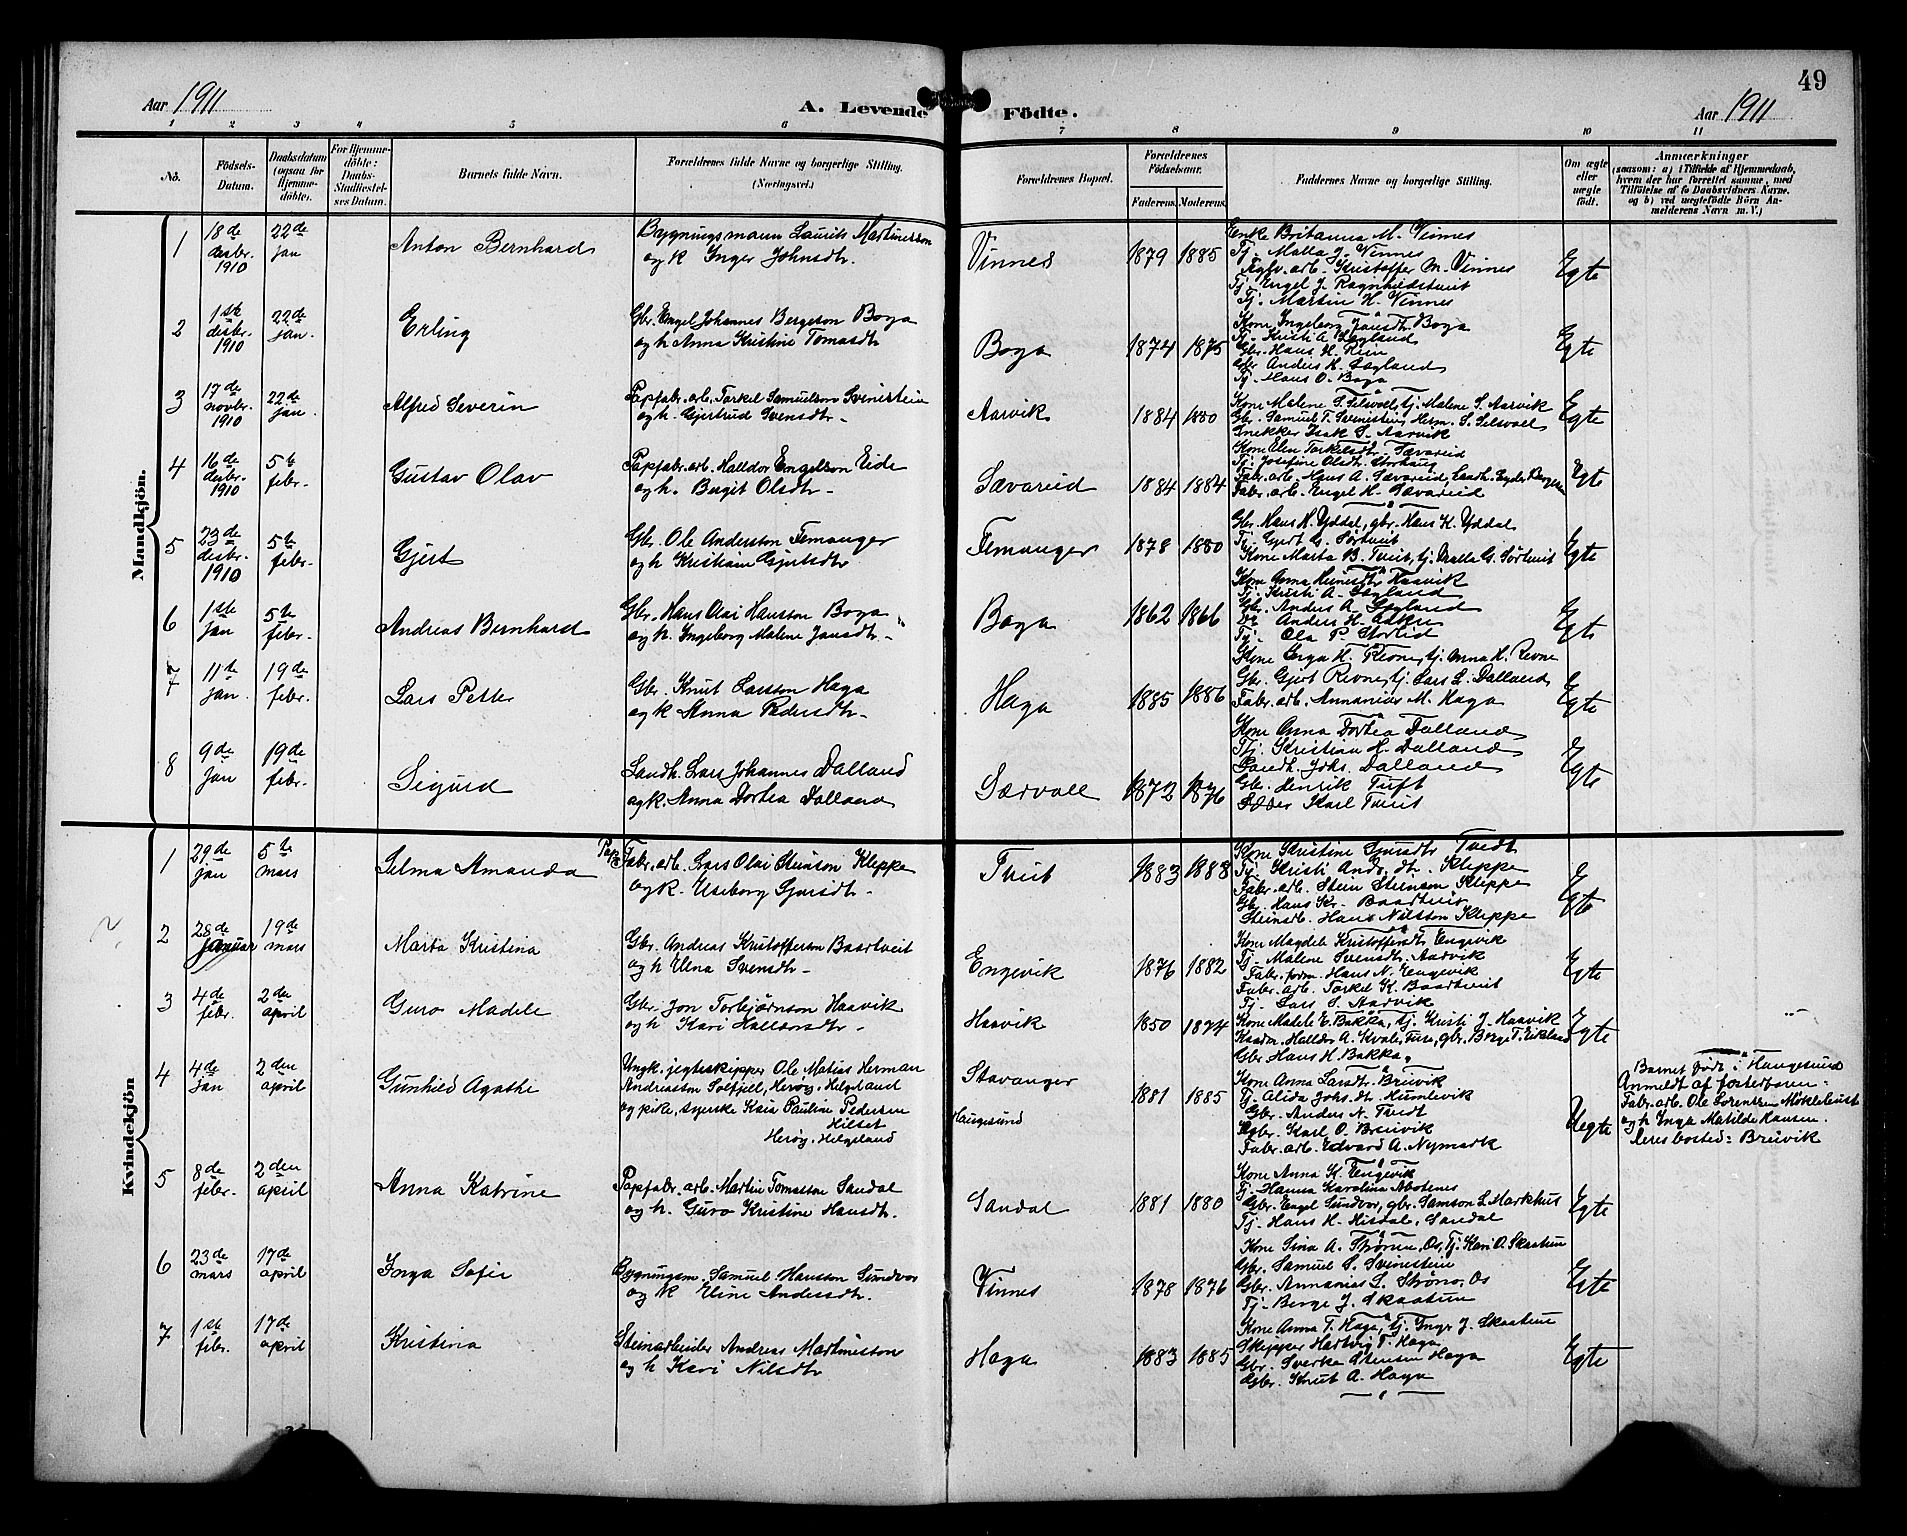 49
Aar 1911
A. Levende Födte.
Aar 1911
1 2 3 4 5 6 7 8 9 10 11
No.
Födsels-Datum.
Daabsdatum (ogsaa for Hjemmedöbte).
For Hjemmedöbte: Daabs-Stadfæstelses Datum.
Barnets fulde Navn.
Forældrenes fulde Navne og borgerlige Stilling. (Næringsvei.)
Forældrenes Bopæl.
Forældrenes Födselsaar.
Faderens. Moderens.
Faddernes Navne og borgerlige Stilling.
Om ægte eller uægte födt.
Anmærkninger
(saasom: a) i Tilfælde af Hjemmedaab, hvem der har forrettet samme, med Tilföielse af to Daabsvidners Navne, og b) ved uægtefödte Börn Anmelderens Navn m. V.)
Mandkjön.
1
18de desbr. 1910
22de jan
Anton Bernhard
Bygningsmann Laurits Martinesson
og k Inger Johnsdtr.
Vinnes
1879 1885
Enke Britanna M. Vinnes
Tj. Malla J. Vinnes
Fabr. arb. Kristoffer M. Vinnes
Tj. Engel J. Ragnhildstveit
Tj. Martin H. Vinnes
Egte
2
1ste desbr. 1910
22de jan.
Erling
Gbr. Engel Johannes Bergeson Boga
og h Anna Kristine Tomasdtr
Boga
1874 1875
Kone Ingeborg Jansdtr. Boga
Tj. Kristi A. Legland
Gbr. Hans H. Rem
Gbr Anders H. Legland
Tj. Hans O. Boga
Egte
3
17de novbr. 1910
22de jan.
Alfred Severin
Papfabr. arb. Torkel Samuelson Svinestein
og h. Gjertrud Svensdtr.
Aarvik
1884 1880
Kone Malene S. Selsvoll, tj. Malene S. Aarvik
Gbr. Samuel T. Svenestein, Herm. S. Selsvoll
Snekker Isak S. Aarvik
Egte
4
16de desbr. 1910
5te febr.
Gustav Olav
Papfabr. arb. Halldor Engelson Eide
og h. Bergit Olsdtr.
Sævareid
1884 1884
Kone Elen Torkelsdtr. Sævareid
Tj. Josefine Olsdtr. Storhaug
Fabr. arb. Hans A. Sævareid, Landh. Lyder Bergesen
Fabr. arb. Engel H. Sævareid
Egte
5
23de desbr. 1910
5te febr.
Gjert
Gbr. Ole Anderson Femanger
og h Kristiane Gjertsdtr
Femanger
1878 1880
Gbr. Hans H. Yddal, gbr. Hans K. Yddal
Tj. Gjert G. Sørtveit
Kone Marta B. Tveit, tj. Malla G. Sørtveit
Egte
6
1ste jan
5te febr.
Andreas Bernhard
Gbr. Hans Olai Hansson Boga
og h. Ingeborg Malene Jansdtr.
Boga
1862 1866
Kone Anna Heinesdtr Haavik
Tj. Kristi A. Legland
Gbr. Anders A. Legland
Tj. Ola P. Storlid
Egte
7
11te jan.
19de febr.
Lars Petter
Gbr. Knut Larsson Haga
og k Anna Pedersdtr.
Haga
1885 1886
Kone Inga H. Revne, tj. Anna H. Revne
Gbr. Gjert Revne, tj. Lars L. Dalland
Fabr. arb. Annanias M. Haga
Egte
8
9de jan
19de febr.
Sigurd
Landh. Lars Johannes Dalland
og k. Anna Dortea Dalland
Særvoll
1872 1876
Kone Anna Dortea Dalland
Tj. Kristina H. Dalland
Landh. Johs. Dalland
Gbr. Henrik Tuft
Karl Tveit
Egte
Kvindekjön
1
29de jan
5te mars
Selma Amanda
Pap Fabr. arb. Lars Olai Steinson Kleppe
og k. Useborg Gjersdtr.
Tveit
1883 1888
Kone Kristine Tvedt
Tj. Kristi And. dtr. Kleppe
Fabr. arb. Stein Steinson Kleppe
Gbr. Hans Kr. Baardtveit
Steinarb. Hans Nilsson Kleppe
Egte
2
28de januar
19de mars
Marta Kristina
Gbr. Andreas Kristofferson Baartveit
og h Elna Svensdtr.
Engevik
1876 1882
Kone Magdela Kristoffersdtr Engevik
Tj. Malene Svensdtr. Aarvik
Fabr. form. Hans N. Engevik
Fabr. arb. Torkel K. Baardtveit
Tj. Lars S. Aarvik
Egte
3
4de febr.
2den april
Guro Madele
Gbr. Jon Torbjørnson Haavik
og h Kari Halldorsdtr.
Haavik
1850 1874
Kone Madele E. Bakka, tj. Kristi J. Haavik
Kaarm. Halldor A. Kvale, Fuse, gbr. Børge T. Eikeland
Gbr. Hans H. Bakka
Egte
4
4de jan
2den april
Gunhild Agathe
Ungk. jegteskipper Ole Matias Herman
Andreassen Solfjell, Herøy, Helgeland
og pike, syerske Kaia Pauline Pedersen
Hilset
Herøy, Helgeland
Stavanger
Haugesund
1881 1885
Kone Anna Larsdtr. Breivik
Tj. Alida Johs. dtr. Humlevik
Gbr. Anders N. Tvedt
Gbr. Karl O. Breivik
Fabr. arb. Edvard A. Nymark
Uegte
Barnet født i Haugesund
Anmeldt af fosterforen:
Fabr. arb. Ole Sorentzen Møklebust
og h Inga Matilde Hansen.
deres bosted: Breivik
5
8de febr.
2den april
Anna Katrine
Papfabr. arb. Martin Tomasson Sandal
og h. Guro Kristine Hansdtr.
Sandal
1881 1880
Kone Anna K. Engevik
Tj. Hanna Karolina Abotenes
Gbr. Engel Sundvor, gbr. Samson L. Markhus
Tj. Hans H. Hisdal, Sandal
Egte
6
23de mars
17de april
Inga Sofie
Bygningsm. Samuel Hansson Sundvor
og k Eline Andersdtr.
Vinnes
1878 1876
Kone Sina A. Strøno, Os, Tj. Kari O. Skaatun
Gbr. Samuel S. Svinestein
Gbr. Annanias L. Strøno, Os
Tj. Berge J. Skaatun
Egte
7
1ste febr.
17de april
Kristina
Steinarbeider Andreas Martinesson
og h Kari Nilsdtr
Haga
1883 1885
Kone Anna T. Haga, tj. Inger J. Skaatun
Skipper Hartvig T. Haga
Gbr. Sverke Stensen Haga
Gbr. Knut A. Haga
Egte